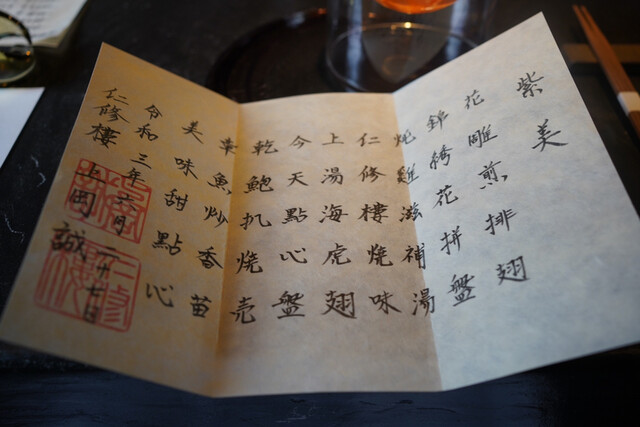 紫美
花雕煎排翅
錦綉花拼盤
炖雞滋補湯
仁修樓燒味
上湯海虎翅
今天點心盤
乾鮑扒燒売
章魚炒香苗
美味甜點心
令和三年六月二十七日
仁修樓 上岡誠